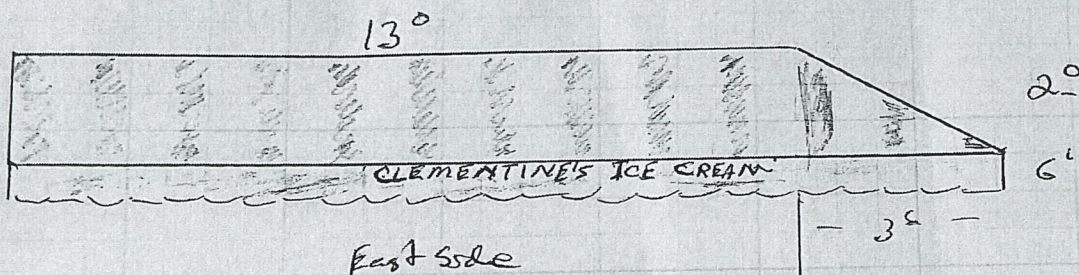 13°
2°
CLEMENTINE'S ICE CREAM
6'
- 3⁶ -
East Side